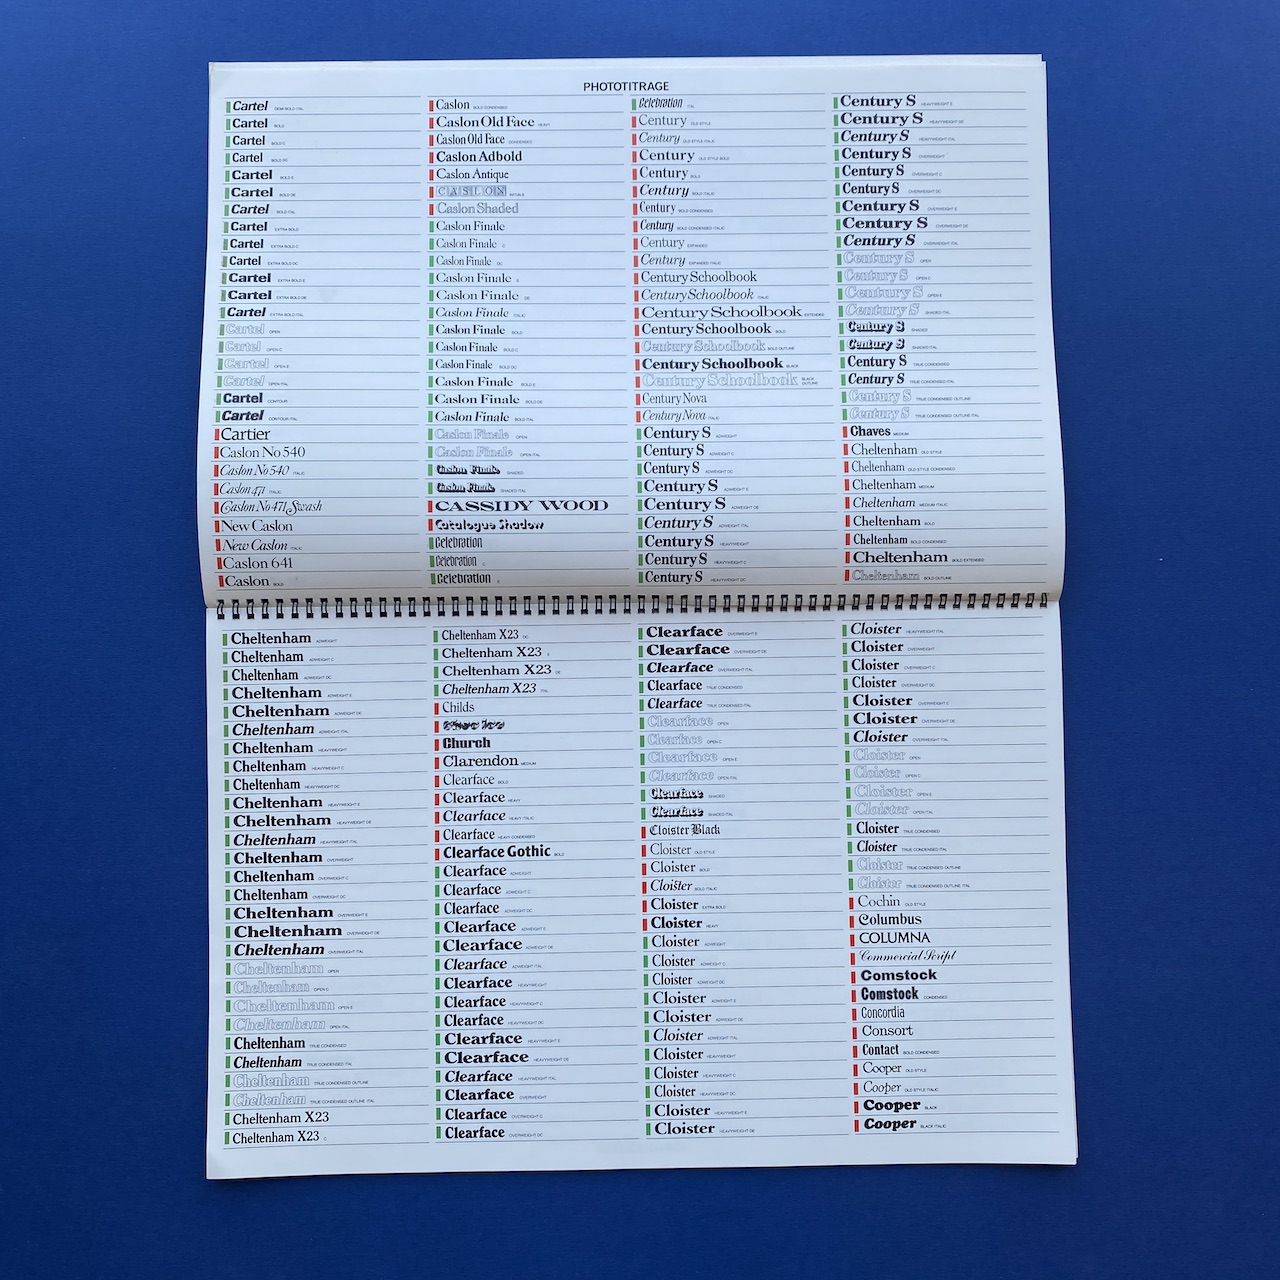 PHOTOTITRAGE
Cartel SEMI BOLD ITAL
Cartel BOLD
Cartel BOLD C
Cartel BOLD DC
Cartel BOLD E
Cartel BOLD DE
Cartel BOLD ITAL
Cartel EXTRA BOLD
Cartel EXTRA BOLD C
Cartel EXTRA BOLD DC
Cartel EXTRA BOLD E
Cartel EXTRA BOLD DE
Cartel EXTRA BOLD ITAL
Cartel OPEN
Cartel OPEN C
Cartel OPEN E
Cartel OPEN ITAL
Cartel CONTOUR
Cartel CONTOUR ITAL
Cartier
Caslon No 540
Caslon No 540 ITALIC
Caslon 471 ITALIC
Caslon No 471 Swash
New Caslon
New Caslon ITALIC
Caslon 641
Caslon BOLD
Caslon BOLD CONDENSED
Caslon Old Face HEAVY
Caslon Old Face CONDENSED
Caslon Adbold
Caslon Antique
CASLON INITIALS
Caslon Shaded
Caslon Finale
Caslon Finale C
Caslon Finale DC
Caslon Finale E
Caslon Finale DE
Caslon Finale ITALIC
Caslon Finale BOLD
Caslon Finale BOLD C
Caslon Finale BOLD DC
Caslon Finale BOLD E
Caslon Finale BOLD DE
Caslon Finale BOLD ITAL
Caslon Finale OPEN
Caslon Finale OPEN ITAL
Caslon Finale SHADED
Caslon Finale SHADED ITAL
CASSIDY WOOD
Catalogue Shadow
Celebration
Celebration C
Celebration E
Celebration ITAL
Century OLD STYLE
Century OLD STYLE ITALIC
Century OLD STYLE BOLD
Century BOLD
Century BOLD ITALIC
Century BOLD CONDENSED
Century BOLD CONDENSED ITALIC
Century EXPANDED
Century EXPANDED ITALIC
Century Schoolbook
Century Schoolbook ITALIC
Century Schoolbook EXTENDED
Century Schoolbook BOLD
Century Schoolbook BOLD OUTLINE
Century Schoolbook BLACK
Century Schoolbook BLACK OUTLINE
Century Nova
Century Nova ITALIC
Century S ADWEIGHT
Century S ADWEIGHT C
Century S ADWEIGHT DC
Century S ADWEIGHT E
Century S ADWEIGHT DE
Century S ADWEIGHT ITAL
Century S HEAVYWEIGHT
Century S HEAVYWEIGHT C
Century S HEAVYWEIGHT DC
Century S HEAVYWEIGHT E
Century S HEAVYWEIGHT DE
Century S HEAVYWEIGHT ITAL
Century S OVERWEIGHT
Century S OVERWEIGHT C
Century S OVERWEIGHT DC
Century S OVERWEIGHT E
Century S OVERWEIGHT DE
Century S OVERWEIGHT ITAL
Century S OPEN
Century S OPEN C
Century S OPEN E
Century S SHADED ITAL
Century S SHADED
Century S SHADED ITAL
Century S TRUE CONDENSED
Century S TRUE CONDENSED ITAL
Century S TRUE CONDENSED OUTLINE
Century S TRUE CONDENSED OUTLINE ITAL
Chaves MEDIUM
Cheltenham OLD STYLE
Cheltenham OLD STYLE CONDENSED
Cheltenham MEDIUM
Cheltenham MEDIUM ITALIC
Cheltenham BOLD
Cheltenham BOLD CONDENSED
Cheltenham BOLD EXTENDED
Cheltenham BOLD OUTLINE
Cheltenham ADWEIGHT
Cheltenham ADWEIGHT C
Cheltenham ADWEIGHT DC
Cheltenham ADWEIGHT E
Cheltenham ADWEIGHT DE
Cheltenham ADWEIGHT ITAL
Cheltenham HEAVYWEIGHT
Cheltenham HEAVYWEIGHT C
Cheltenham HEAVYWEIGHT DC
Cheltenham HEAVYWEIGHT E
Cheltenham HEAVYWEIGHT DE
Cheltenham HEAVYWEIGHT ITAL
Cheltenham OVERWEIGHT
Cheltenham OVERWEIGHT C
Cheltenham OVERWEIGHT DC
Cheltenham OVERWEIGHT E
Cheltenham OVERWEIGHT DE
Cheltenham OVERWEIGHT ITAL
Cheltenham OPEN
Cheltenham OPEN C
Cheltenham OPEN E
Cheltenham OPEN ITAL
Cheltenham TRUE CONDENSED
Cheltenham TRUE CONDENSED ITAL
Cheltenham TRUE CONDENSED OUTLINE
Cheltenham TRUE CONDENSED OUTLINE ITAL
Cheltenham X23
Cheltenham X23 C
Cheltenham X23 DC
Cheltenham X23 E
Cheltenham X23 DE
Cheltenham X23 ITAL
Childs
Church
Clarendon MEDIUM
Clearface BOLD
Clearface HEAVY
Clearface HEAVY ITALIC
Clearface HEAVY CONDENSED
Clearface Gothic BOLD
Clearface ADWEIGHT
Clearface ADWEIGHT C
Clearface ADWEIGHT DC
Clearface ADWEIGHT E
Clearface ADWEIGHT DE
Clearface ADWEIGHT ITAL
Clearface HEAVYWEIGHT
Clearface HEAVYWEIGHT C
Clearface HEAVYWEIGHT DC
Clearface HEAVYWEIGHT E
Clearface HEAVYWEIGHT DE
Clearface HEAVYWEIGHT ITAL
Clearface OVERWEIGHT
Clearface OVERWEIGHT C
Clearface OVERWEIGHT DC
Clearface OVERWEIGHT E
Clearface OVERWEIGHT DE
Clearface OVERWEIGHT ITAL
Clearface TRUE CONDENSED
Clearface TRUE CONDENSED ITAL
Clearface OPEN
Clearface OPEN C
Clearface OPEN E
Clearface OPEN ITAL
Clearface SHADED
Clearface SHADED ITAL
Cloister Black
Cloister OLD STYLE
Cloister BOLD
Cloister BOLD ITALIC
Cloister EXTRA BOLD
Cloister HEAVY
Cloister ADWEIGHT
Cloister ADWEIGHT C
Cloister ADWEIGHT DC
Cloister ADWEIGHT E
Cloister ADWEIGHT DE
Cloister ADWEIGHT ITAL
Cloister HEAVYWEIGHT
Cloister HEAVYWEIGHT C
Cloister HEAVYWEIGHT DC
Cloister HEAVYWEIGHT E
Cloister HEAVYWEIGHT DE
Cloister HEAVYWEIGHT ITAL
Cloister OVERWEIGHT
Cloister OVERWEIGHT C
Cloister OVERWEIGHT DC
Cloister OVERWEIGHT E
Cloister OVERWEIGHT DE
Cloister OVERWEIGHT ITAL
Cloister OPEN
Cloister OPEN C
Cloister OPEN E
Cloister OPEN ITAL
Cloister TRUE CONDENSED
Cloister TRUE CONDENSED ITAL
Cloister TRUE CONDENSED OUTLINE
Cloister TRUE CONDENSED OUTLINE ITAL
Cochin OLD STYLE
Columbus
COLUMNA
Commercial Script
Comstock
Comstock CONDENSED
Concordia
Consort
Contact BOLD CONDENSED
Cooper OLD STYLE
Cooper OLD STYLE ITALIC
Cooper BLACK
Cooper BLACK ITALIC